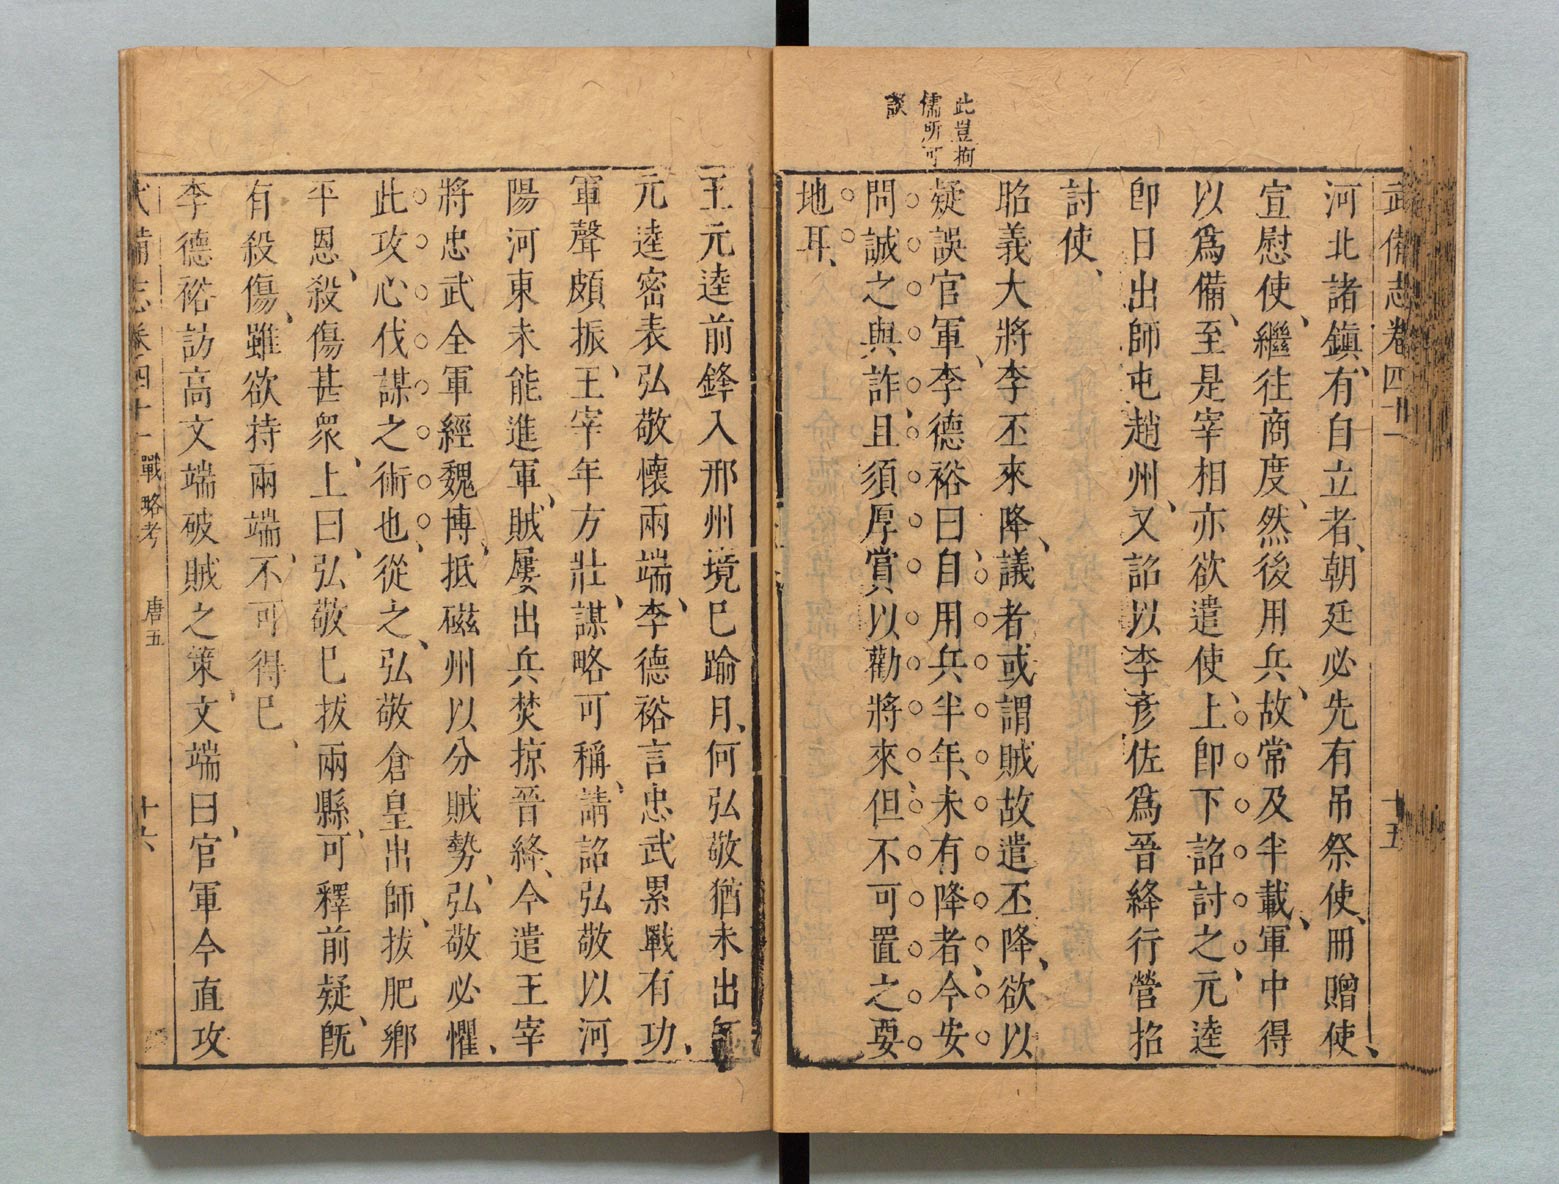 武備志卷四十一
十五
此豈拘
儒所可
談
河北諸鎮、有自立者、朝廷必先有吊祭使、冊贈使、
宣慰使、繼往商度、然後用兵、故常及半載、軍中得
以爲備、至是宰相亦欲遣使、上卽下詔討之、元逵
卽日出師屯趙州、又詔以李彥佐爲晉絳行營招
討使、
昭義大將李丕來降、議者或謂賊故遣丕降、欲以
疑誤官軍、李德裕曰、自用兵半年、未有降者、今安
問誠之與詐、且須厚賞以勸將來、但不可置之要
地耳、
王元逵前鋒入邢州境巳踰月、何弘敬猶未出師
元逵密表弘敬懷兩端、李德裕言忠武累戰有功、
軍聲頗振、王宰年方壯、謀略可稱、請詔弘敬以河
陽河東未能進軍、賊屢出兵焚掠晉絳、今遣王宰
將忠武全軍經魏博、抵磁州以分賊勢、弘敬必懼、
此攻心伐謀之術也、從之、弘敬倉皇出師、拔肥鄉
平恩、殺傷甚衆、上曰、弘敬巳拔兩縣、可釋前疑、旣
有殺傷、雖欲持兩端、不可得巳、
李德裕訪高文端破賊之策、文端曰、官軍今直攻
武備志卷四十一 戰略考 唐五
十六